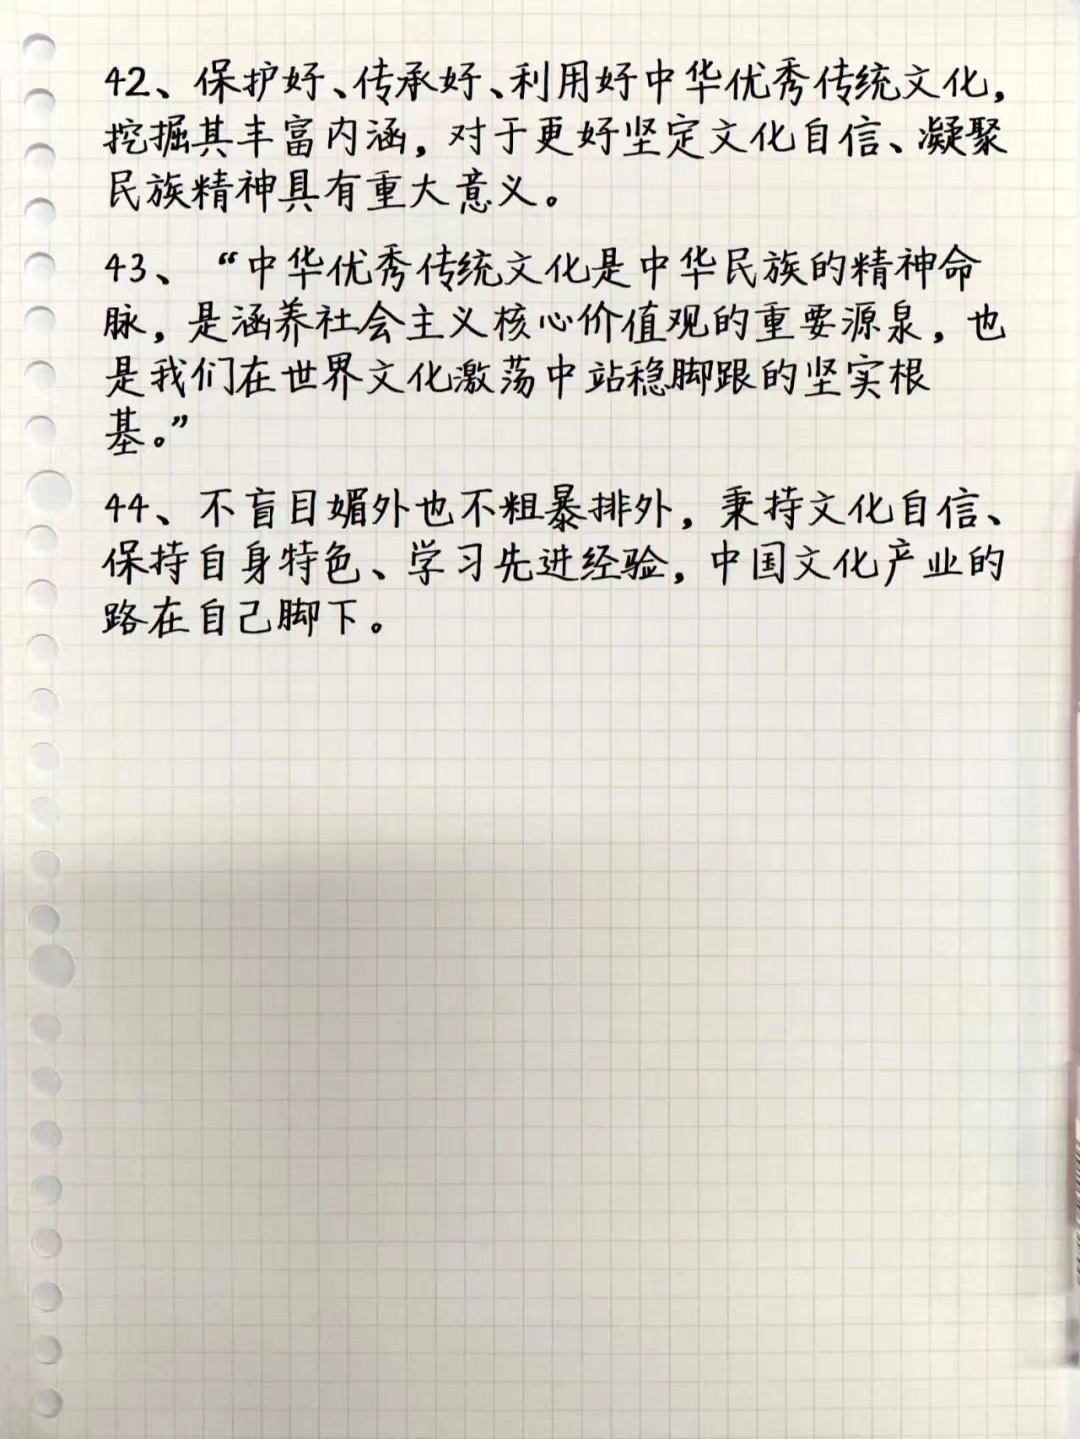 42、保护好、传承好、利用好中华优秀传统文化，
挖掘其丰富内涵，对于更好坚定文化自信、凝聚
民族精神具有重大意义。
43、“中华优秀传统文化是中华民族的精神命
脉，是涵养社会主义核心价值观的重要源泉，也
是我们在世界文化激荡中站稳脚跟的坚实根
基。”
44、不盲目媚外也不粗暴排外，秉持文化自信、
保持自身特色、学习先进经验，中国文化产业的
路在自己脚下。